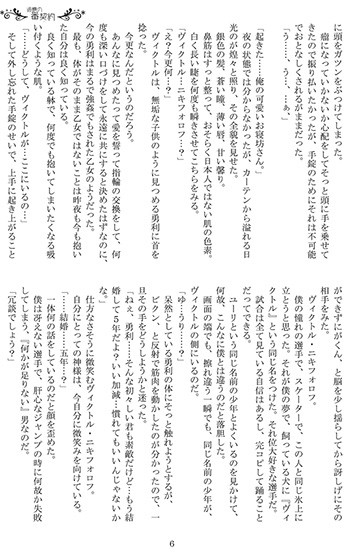 番契約
に頭をガツンをぶつけてしまった。
瘤になっていないか心配をしてそっと頭に手を乗せて
きたので振り払いたかったが、手錠のためにそれは不可能
でおとなしくされるがままだった。
「う……、う……、ぁ…」
「起きた…、俺の可愛いお寝坊さん。」
夜の状態では分からなかったが、カーテンから溢れる日
光のが煌々と照り、その全貌を見せた。
銀色の髪、蒼い瞳、薄い唇、甘い響り。
鼻筋はすっと整って、おそらく日本人ではない肌の色素。
白く長い睫を何度も瞬きさせてこちらをみる。
「ヴィクトル・ニキフォロフ…っ？」
「え？今更何…？」
ヴィクトルは、無垢な子供のように見つめる勇利に首を
捻った。
今更なんだというのだろう。
あんなに見つめたって愛を誓って指輪の交換をして、何
度も深い口づけをして永遠に共にすると決めたはずなのに、
今の勇利はまるで強姦でもされた乙女のようだった。
最も、体がそのまま乙女ではないことは昨夜も今も抱い
た自分は良く知っている。
良く知っている躰で、何度でも抱いてしまいたくなる吸
い付くような肌。
「……どうして、ヴィクトルが…ここにいるの…」
そして外し忘れた手錠のせいで、上手に起き上がること
ができずにがくん、と脳を少し揺らしてから訝しげにその
相手をみた。
ヴィクトル・ニキフォロフ。
僕の憧れの選手で、スケーターで、この人と同じ氷上に
立とうと思った。それが僕の夢で、飼っている犬に『ヴィ
クトル』という同じ名をつけた。それ位大好きな選手だ。
試合は全て見ている自信はあるし、完コピして踊ること
だってできる。
ユーリという同じ名前の少年とよくいるのを見かけて、
何故、こんなに僕とは違うのだと落胆した。
画面の端でも、擦れ違う一瞬でも、同じ名前の少年が、
ヴィクトルの側にいるのだ。
「ゆ…うり…？」
呆然としている勇利の体にそっと触れようとすが、
ピクン、と反射で筋肉を動かしたのが分かったので、一
旦その手をどうしようかと迷った。
「ねぇ、勇利……そんな初々しい君も素敵だけど…もう結
婚して５年だよ？いい加減…慣れてもいいんじゃないか
な。」
仕方なさそうに微笑むヴィクトル・ニキフォロフ。
自分にとっての神様は、今自分に微笑みを向けている。
「……結婚……五年…？」
一体何の話をしているのだと顔を歪めた。
僕は冴えない選手で、肝心なジャンプの時に何故か失敗
してしまう、『何かが足りない』男なのだ。
「冗談でしょう？」
6